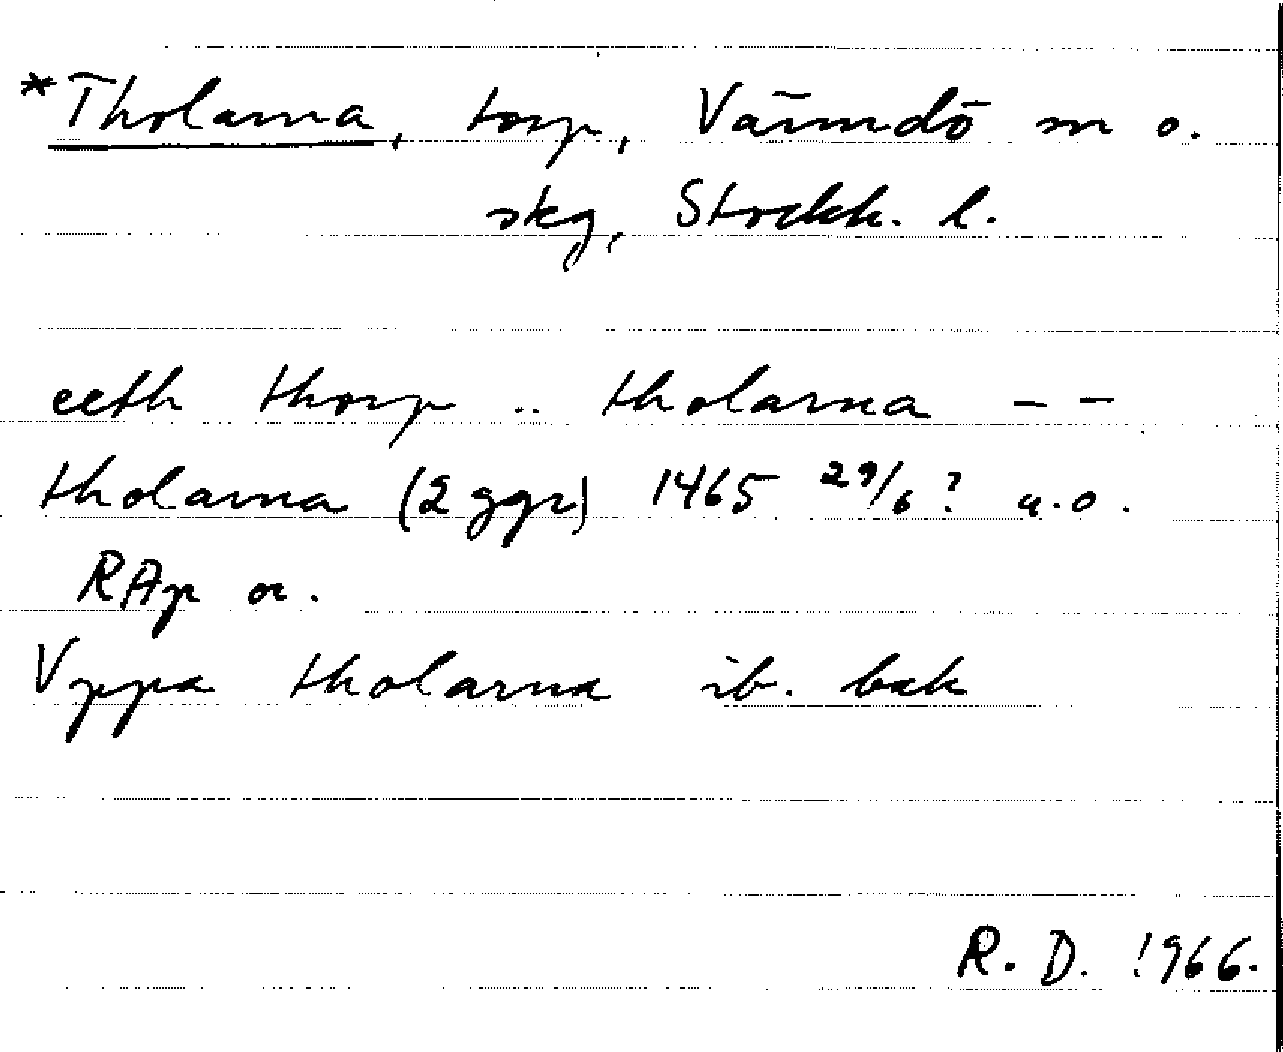 *Tholarna, torp, Värmdö sn o.
skg, Stockh. l.
eeth thorp .. tholarna – –
tholarna (2 ggr) 1465 29/6? u.o.
RAp or.
Vppa tholarna ib. bak
R. D. 1966.